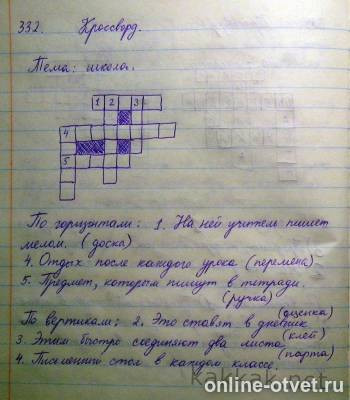 332. Кроссворд.
Тема: школа.
1 2 3
4
5
По горизонтали: 1. На ней учитель пишет
мелом. (доска)
4. Отдых после каждого урока (перемена)
5. Предмет, которым пишут в тетради.
(ручка)
(оценка)
По вертикали: 2. Это ставят в дневник
3. Этим быстро соединяют два листа (клей)
4. Письменный стол в каждом классе. (парта)
online-otvet.ru